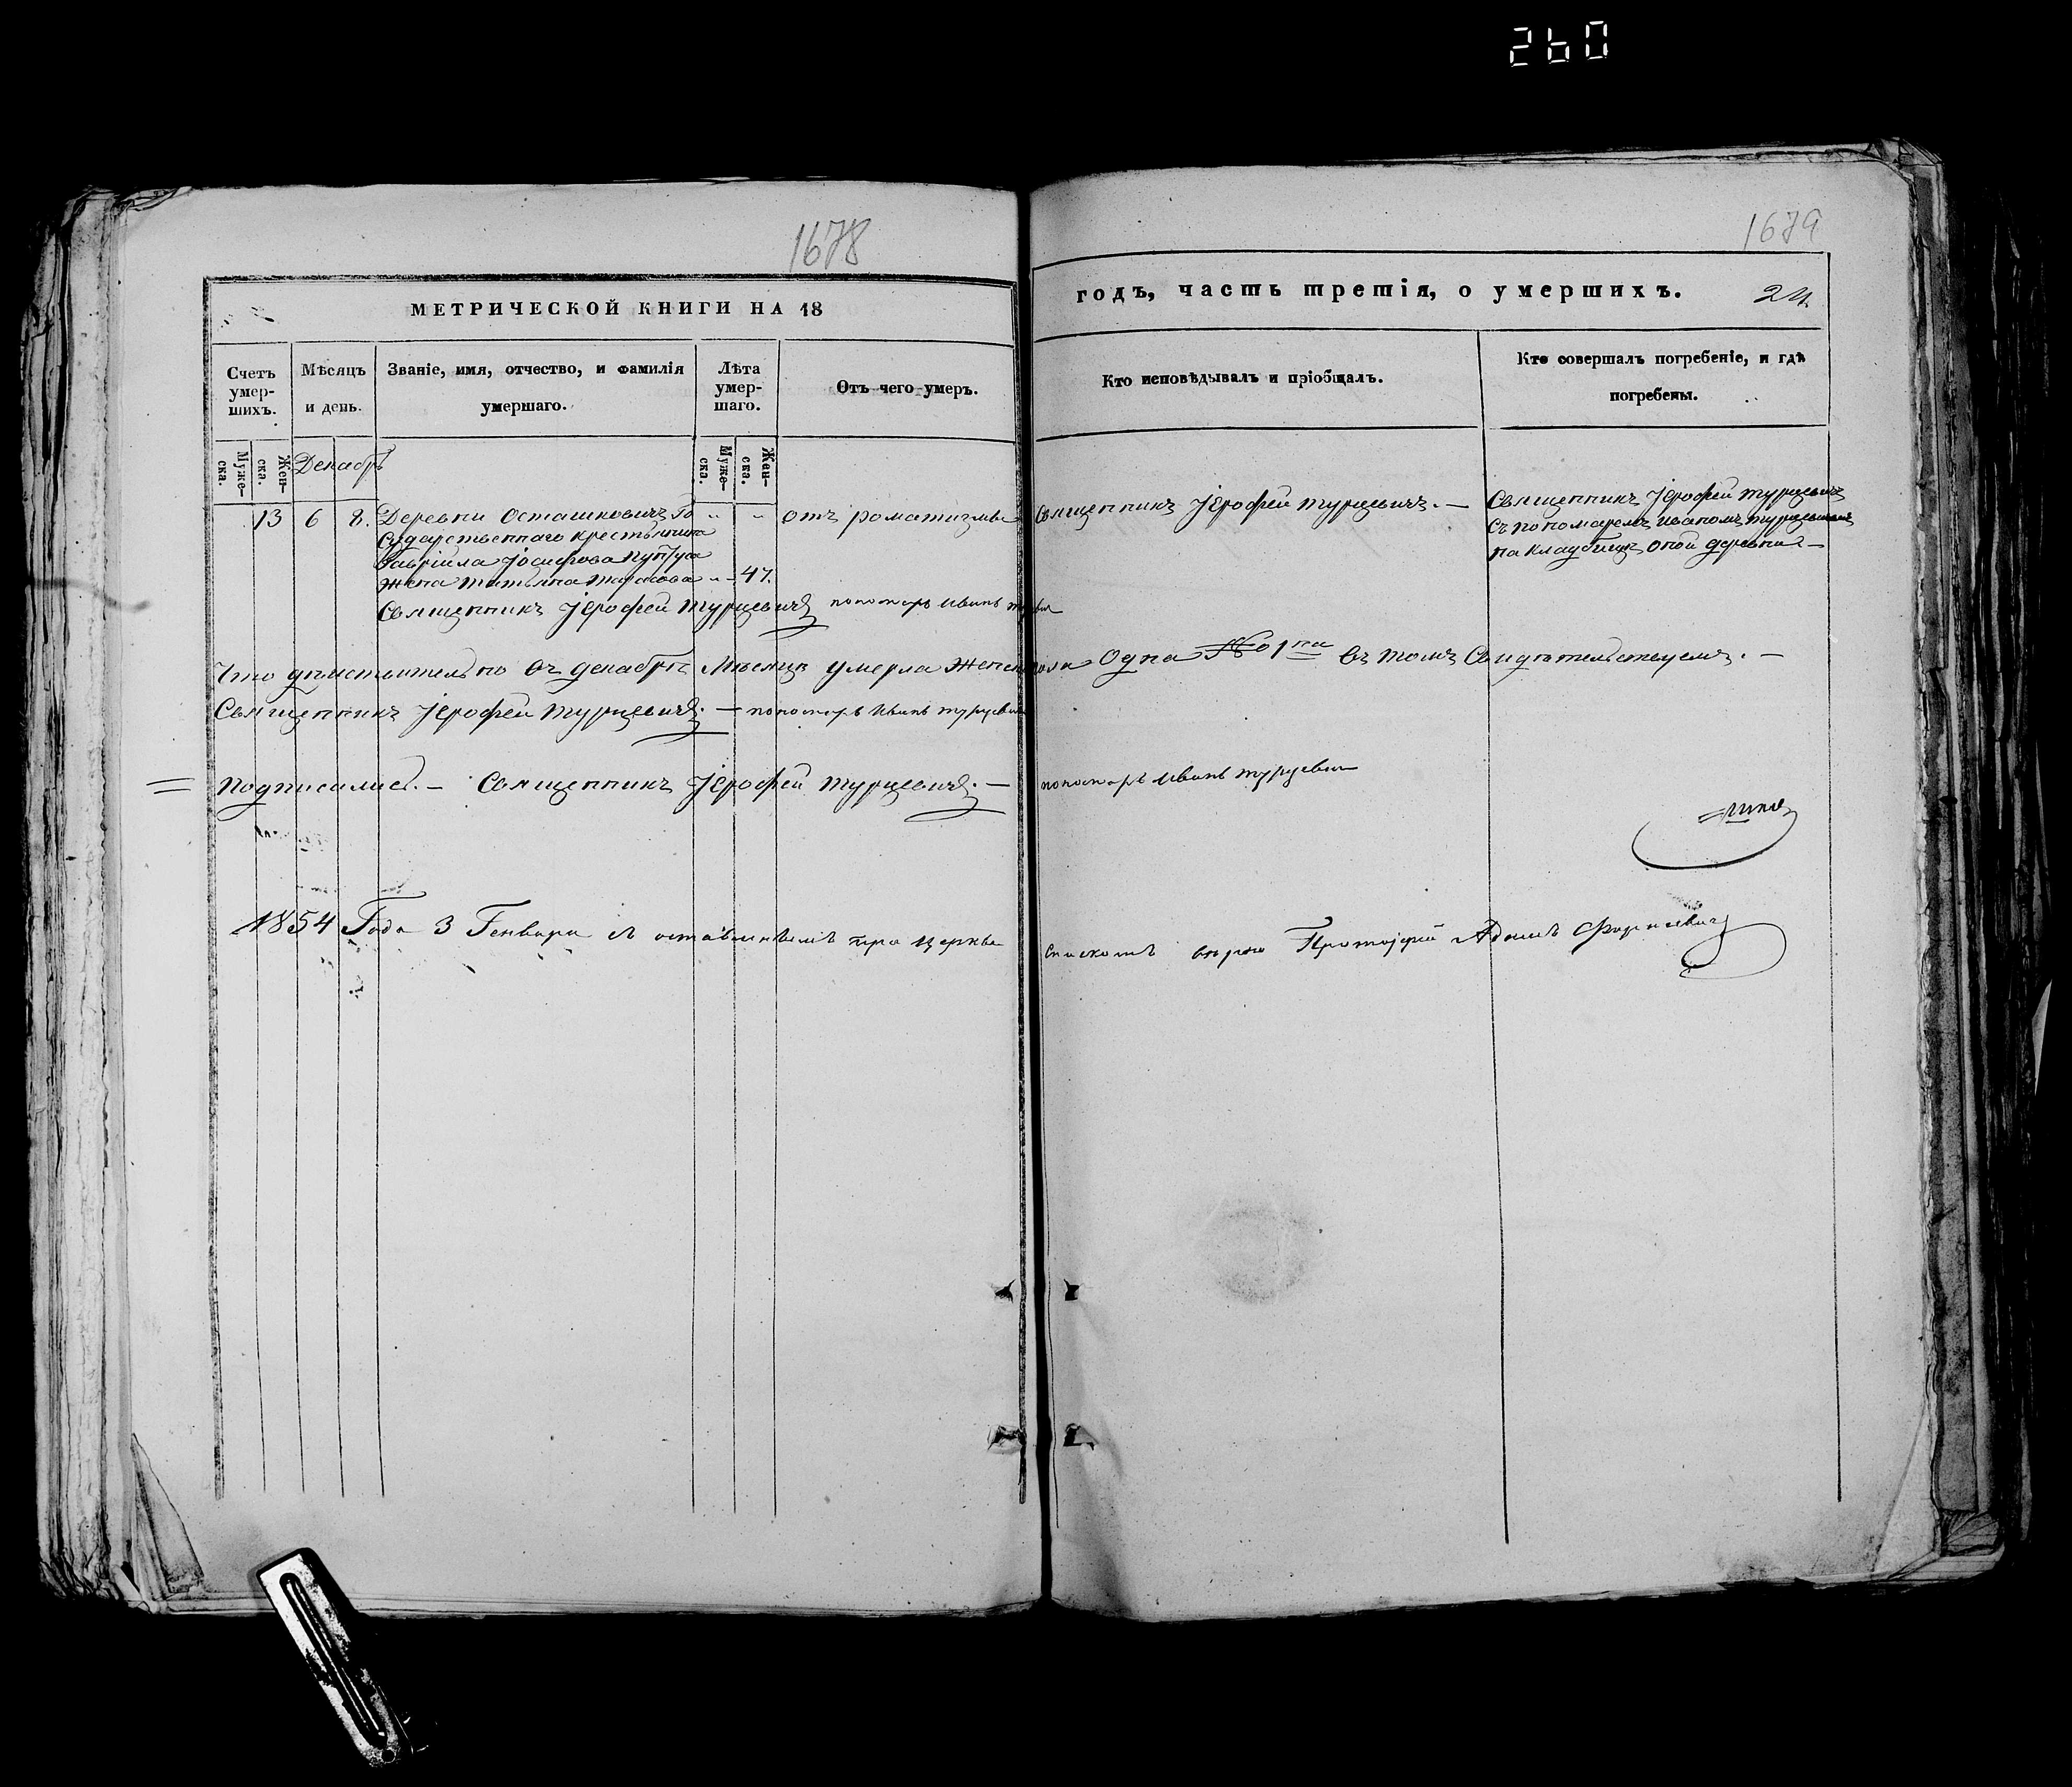 260
1678
1679
МЕТРИЧЕСКОЙ КНИГИ НА 18
годъ, часть третія, о умершихъ.
24.
Счетъ умер-шихъ.
Мѣсяцъ и день.
Званіе, имя, отчество, и фамилія умершаго.
Лѣта умер-шаго.
Отъ чего умеръ.
Кто исповѣдывалъ и пріобщалъ.
Кто совершалъ погребеніе, и гдѣ погребены.
Муже-ска.
Жен-ска.
Декабрь
Муже-ска.
Жен-ска.
13 6 8. Деревни Осташковичъ Го
сударственнаго крестьянина
Гавріила Іосифова
жена Татьяна Тарасова 47.
отъ роматизма
Священникъ Іерофей Турцевичъ. —
Священникъ Іерофей Турцевичъ
съ пономаремъ Иваномъ Турцевичемъ
на кладбищѣ оной деревни —
Священникъ Іерофей Турцевичъ пономарь Иванъ
Что дѣйствительно въ декабрѣ мѣсяцѣ умерла женска пола Одна № 1на въ томъ Свидѣтельствуемъ. —
Священникъ Іерофей Турцевичъ. — пономарь Иванъ Турцевичъ
Подписались. — Священникъ Іерофей Турцевичъ. — пономарь Иванъ Турцевичъ
1854 Года 3 Генваря съ оставленнымъ при церкви спискомъ вѣрно Протоіерей Адамъ